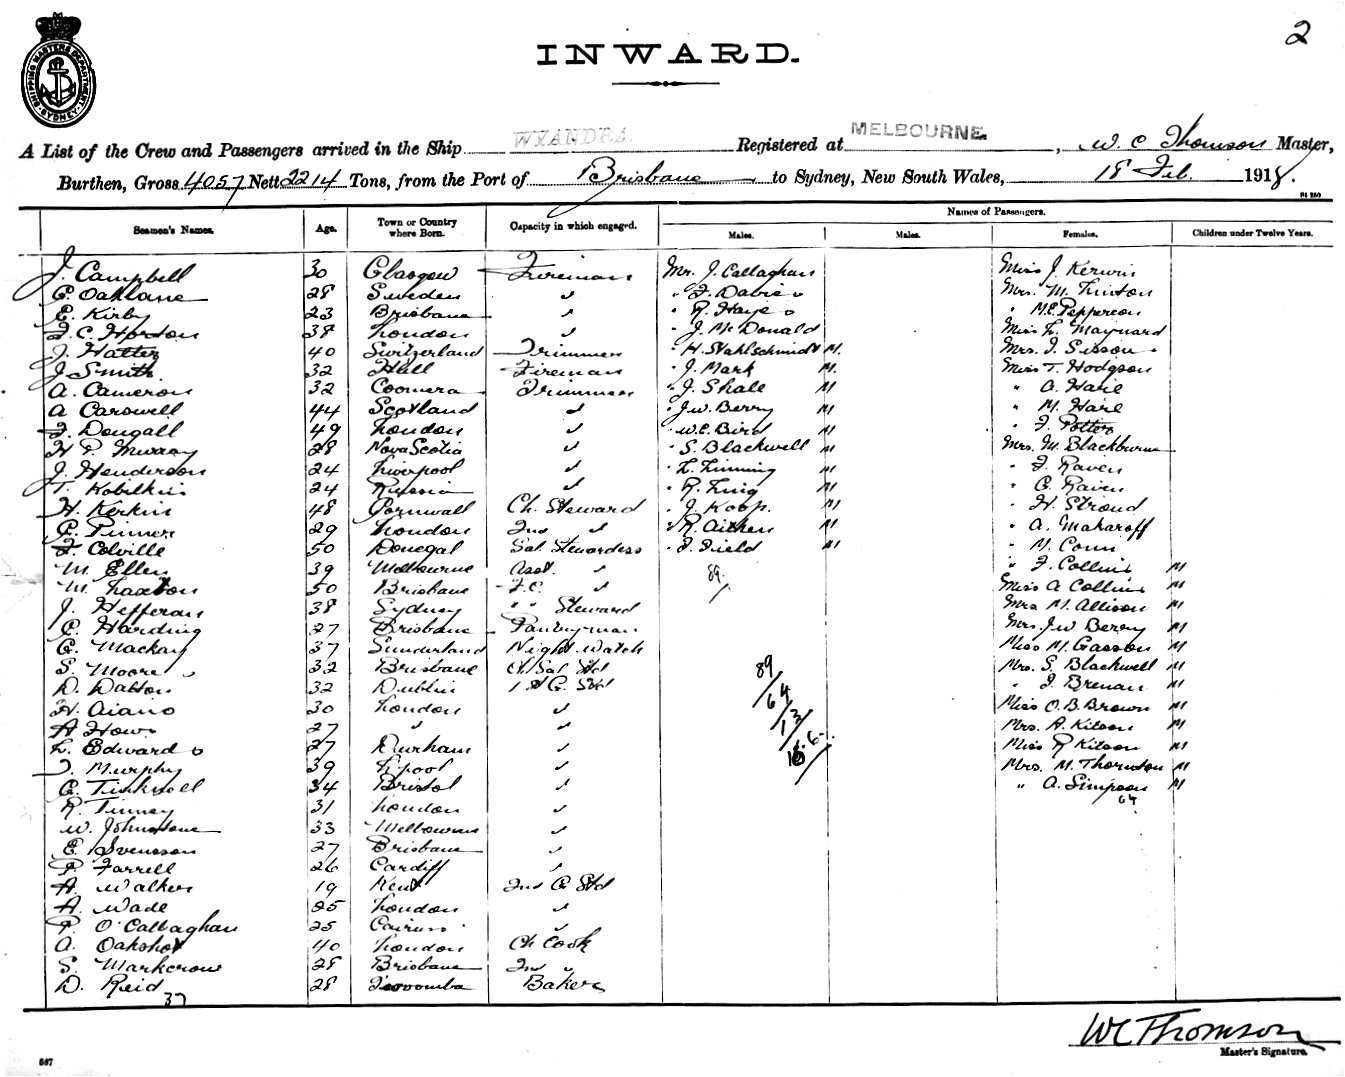 2
INWARD.
SHIPPING MASTERS DEPARTMENT SYDNEY
A List of the Crew and Passengers arrived in the Ship WYANDRA Registered at MELBOURNE, W. C Thomson Master,
Burthen, Gross 4057 Nett 2214 Tons, from the Port of Brisbane to Sydney, New South Wales, 18 Feb. 1918.
Names of Passengers.
Seamen's Names. Age. Town or Country where Born. Capacity in which engaged. Males. Males. Females. Children under Twelve Years.
J. Campbell 30 Glasgow Fireman Mr. J. Callaghan Miss J. Kerwin
C. Oaklane 28 Sweden " " F. Davies Mrs. M. Linton
E. Kirby 23 Brisbane " " R. Hayes " M.E. Pepperen
F. C. Horton 38 London " " J. McDonald Miss L. Maynard
J. Hatter 40 Switzerland Trimmer " H. Stahlschmidt M. Mrs. J. Sisson
J. Smith 32 Hull Fireman " J. Mark M. Miss T. Hodgson
A. Cameron 32 Coomera Trimmer " J. Shale M " A. Haile
A Carswell 44 Scotland " " J.W. Berry M " M. Haile
J. Dougall 49 London " " W.E. Bird M " F. Potter
H P. Murray 28 Nova Scotia " " S. Blackwell M Mrs. M. Blackburne
J. Henderson 24 Liverpool " " L. Linning M " F. Raven
T. Kobilkin 24 Russia " " R. Ling M " C. Raven
H. Kerkin 48 Cornwall Ch. Steward " J. Koop. M " H. Stroud
C. Pinner 29 London 2nd " " R. Aitken M " A. Makaroff
F. Colville 50 Donegal Sal. Stewardess " F. Field M " M. Conn
M. Ellen 39 Melbourne Asst. " 89. " F. Collins M
M. Laxton 50 Brisbane F.C. " Miss A Collins M
J. Hefferan 38 Sydney " " Steward Mrs M. Allison M
C. Harding 27 Brisbane Pantryman Mrs. J.W Berry M
G. Mackay 37 Sunderland Night Watch Miss M. Gasson M
S. Moore 32 Brisbane Ch Sal Std 89 Mrs. S. Blackwell M
D. Dalton 32 Dublin 1st C. Std 64 " J. Brenan M
H. Aiano 30 London " 13 Miss O.B. Brown M
A Hows 27 " " Mrs. A. Kilson M
L. Edwards 27 Durham " Miss R Kilson M
J. Murphy 39 L'pool " Mrs. M. Thornton M
C. Tinknell 34 Bristol " " A. Simpson M
R. Tinney 31 London " 64
W. Johnstone 33 Melbourne "
E. Svensson 27 Brisbane "
P. Farrell 26 Cardiff "
A. Walker 19 Kent 2nd C Std
A. Wade 25 London "
P. O'Callaghan 25 "
A. Oakshot 40 London Ch Cook
S. Markcrow 28 Brisbane 2nd "
D. Reid 28 Toowoomba Baker
37
WC Thomson
Master's Signature.
587